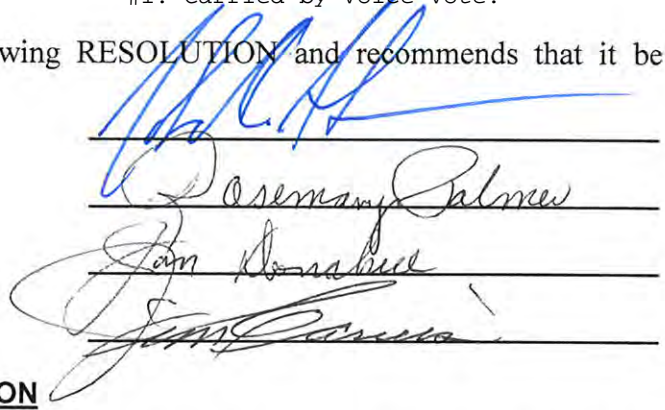 #1. Carried by voice vote.
wing RESOLUTION and recommends that it be
Rosemary Palmer
Jan Donahue
Jim
ON